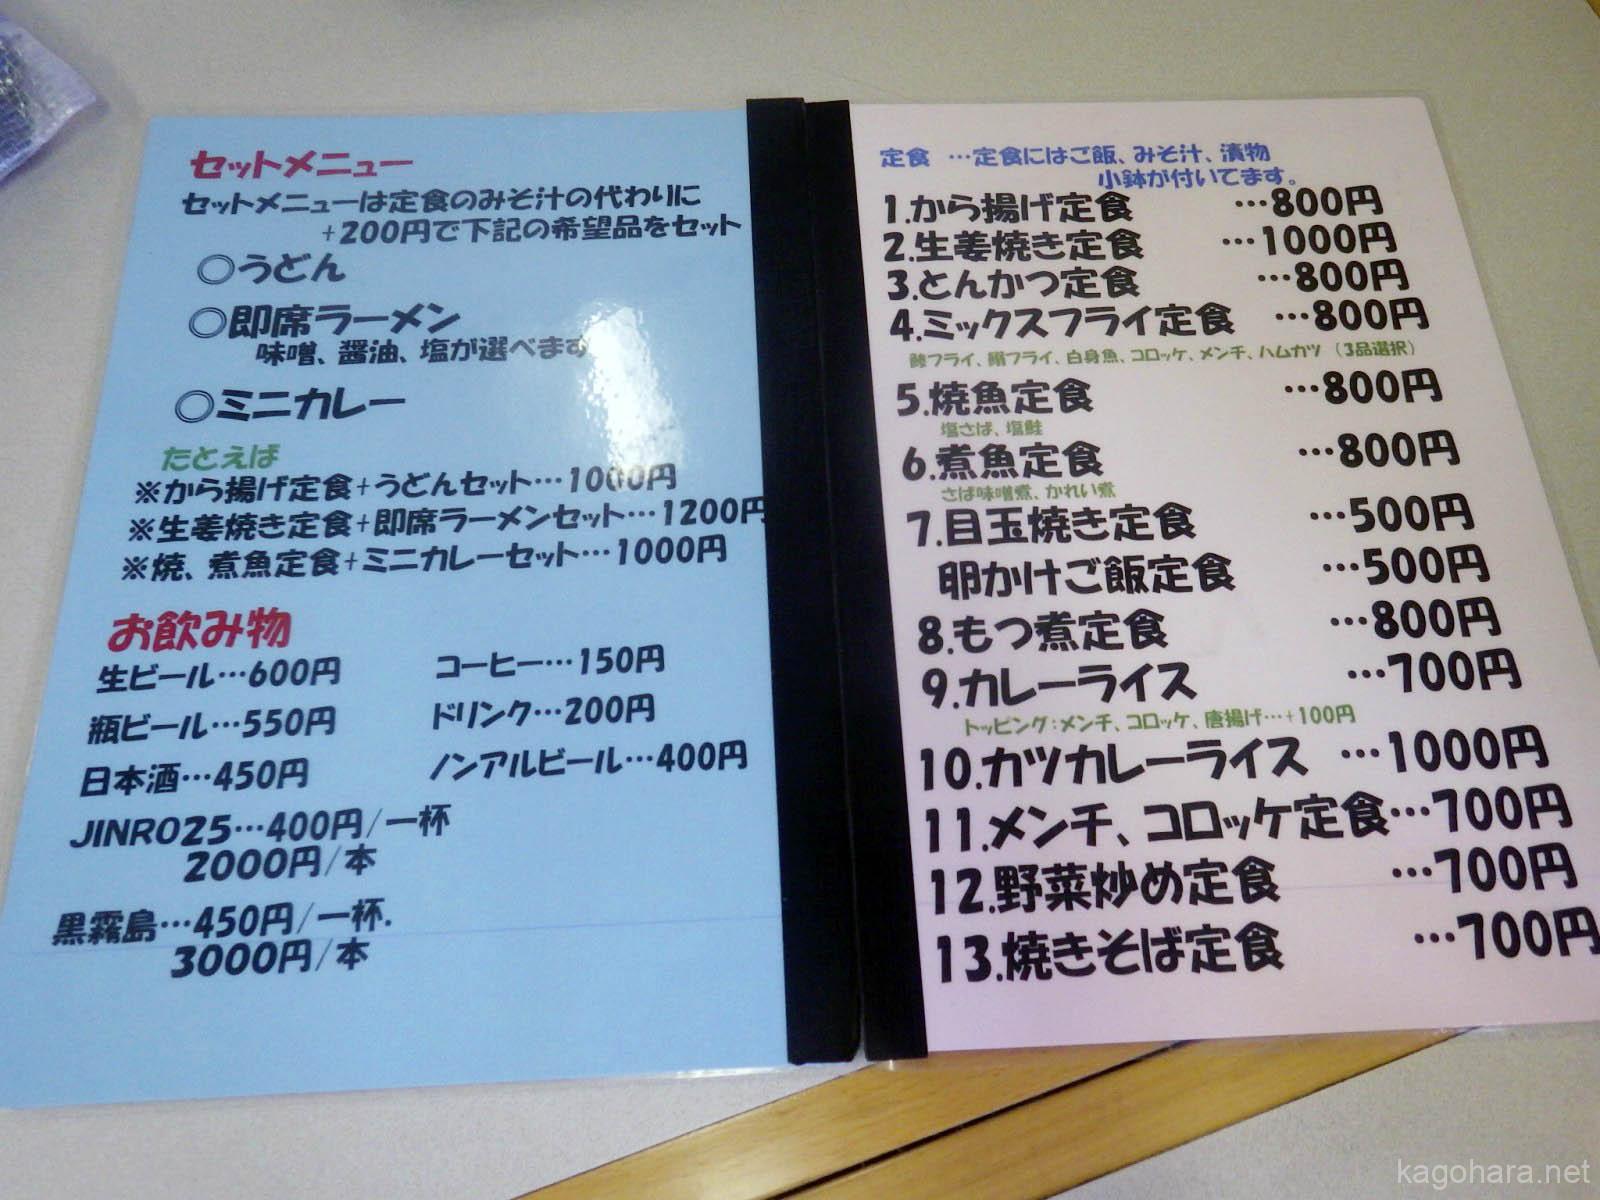 セットメニュー
セットメニューは定食のみそ汁の代わりに
+200円で下記の希望品をセット
◎うどん
◎即席ラーメン
味噌、醤油、塩が選べます
◎ミニカレー
たとえば
※から揚げ定食+うどんセット…1000円
※生姜焼き定食+即席ラーメンセット…1200円
※焼、煮魚定食+ミニカレーセット…1000円
お飲み物
生ビール…600円
瓶ビール…550円
日本酒…450円
JINRO25…400円/一杯
2000円/本
黒霧島…450円/一杯.
3000円/本
コーヒー…150円
ドリンク…200円
ノンアルビール…400円
定食 …定食にはご飯、みそ汁、漬物
小鉢が付いてます。
1.から揚げ定食 …800円
2.生姜焼き定食 …1000円
3.とんかつ定食 …800円
4.ミックスフライ定食 …800円
鯵フライ、鰯フライ、白身魚、コロッケ、メンチ、ハムカツ (3品選択)
5.焼魚定食 …800円
塩さば、塩鮭
6.煮魚定食 …800円
さば味噌煮、かれい煮
7.目玉焼き定食 …500円
卵かけご飯定食 …500円
8.もつ煮定食 …800円
9.カレーライス …700円
トッピング:メンチ、コロッケ、唐揚げ…+100円
10.カツカレーライス …1000円
11.メンチ、コロッケ定食…700円
12.野菜炒め定食 …700円
13.焼きそば定食 …700円
kagohara.net